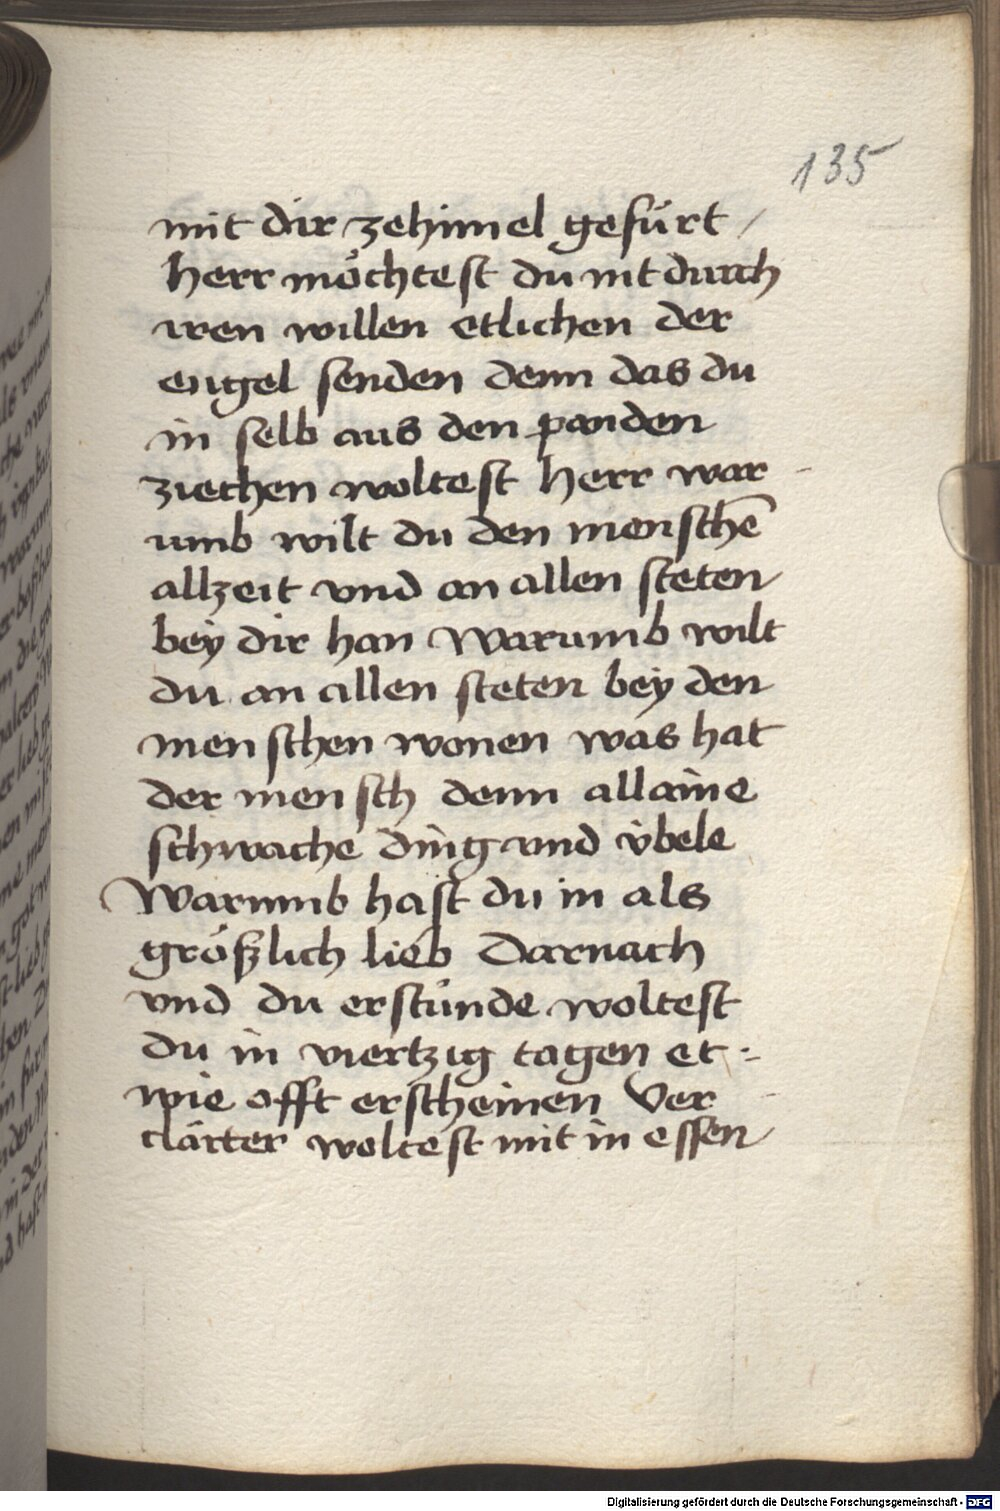 135
mit dir zehimel gefürt /
herr möchtest du nit durch
iren willen etlichen der
engel senden denn das du
in selb aus den panden
ziechen woltest herr war -
umb wilt du den menschē
allzeit vnd an allen steten
bey dir han Warumb wilt
du an allen steten bey den
menschen wonen was hat
der mensch denn allaine
schwache ding vnd v̇bele
Warumb hast du in als
größlich lieb Darnach
vnd du erstünde woltest
du in viertzig tagen et -
wie offt erscheinen Ver -
clärter woltest mit in essen
Digitalisierung gefördert durch die Deutsche Forschungsgemeinschaft - DFG